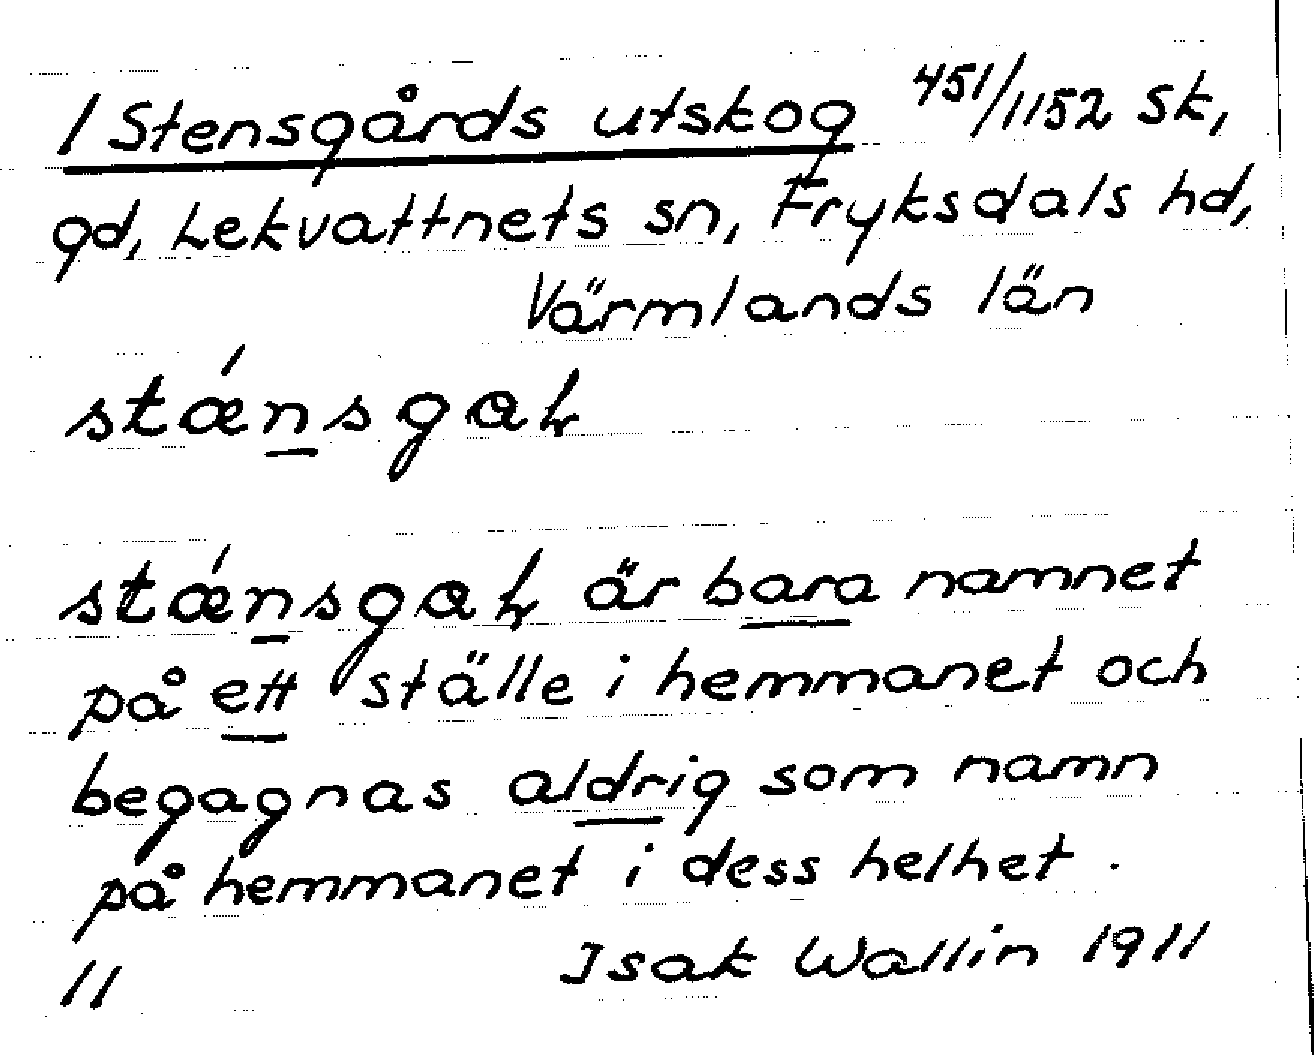 1 Stensgårds utskog 451/1152 sk,
gd, Lekvattnets sn, Fryksdals hd,
Värmlands län
stǽn̲sgaɫ
stǽn̲sgaɫ är bara namnet
på ett ställe i hemmanet och
begagnas aldrig som namn
på hemmanet i dess helhet.
11 Isak Wallin 1911